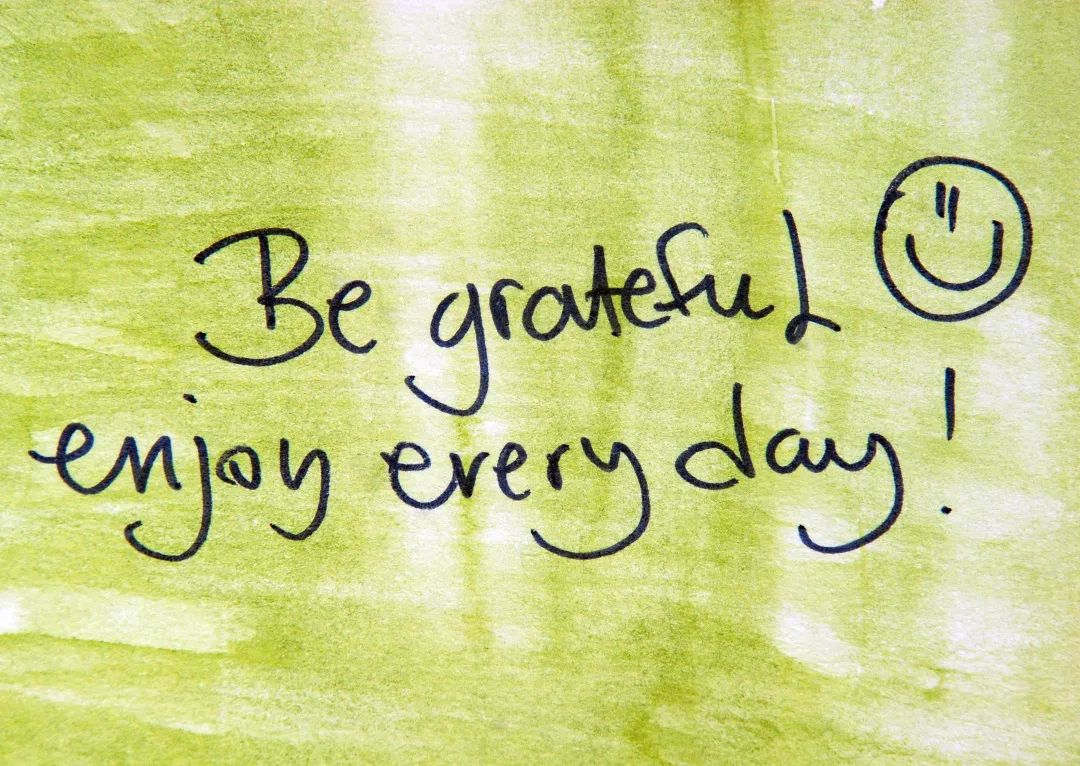 Be grateful
enjoy every day!